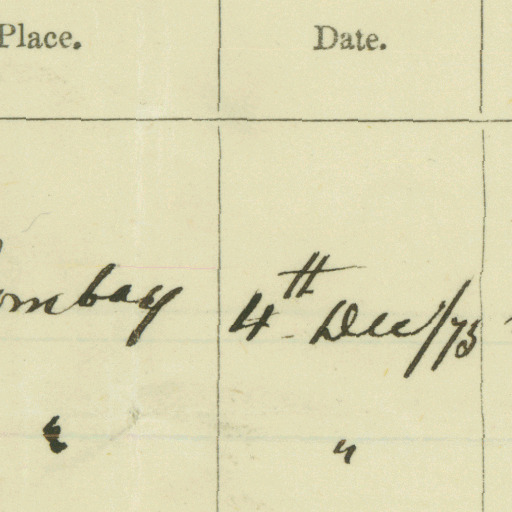 Place. Date.
ombay 4th Dec/73
" "